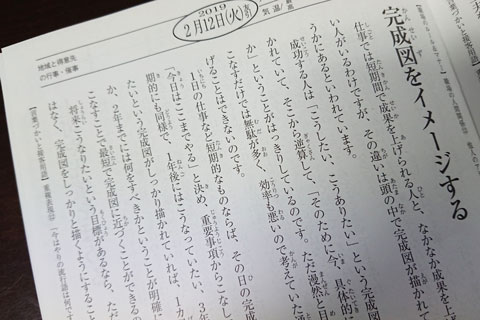 2019
2月12日(火)
気温/
地域と得意先
の行事・催事
完成図をイメージする
仕事では短期間で成果を上げられる人と、なかなか成果を上
い人がいるわけですが、その違いは頭の中で完成図が描かれて
うかにあるといわれています。
成功する人は「こうしたい、こうありたい」という完成図
かれていて、そこから逆算して、「そのために今、具体的に
か」ということがはっきりしているのです。ただ漫然と目
こなすだけでは無駄が多く、効率も悪いので考えていた通
げることはできないのです。
1日の仕事など短期的なものならば、その日の完成
「今日はここまでやる」と決め、重要事項からこなし
期的にも同様で、1年後にはこうなっていたい、3年
たいという完成図がしっかり描かれていれば、1カ
か、2年までには何をすべきかということが明確に
こなすことで最短で完成図に近づくことができるの
将来こうなりたいという目標があるなら、ただ
はなく、完成図をしっかりと描くようにするこ
【言葉づかいと接客用語】重複表現⑫「今はやりの流行語は何です